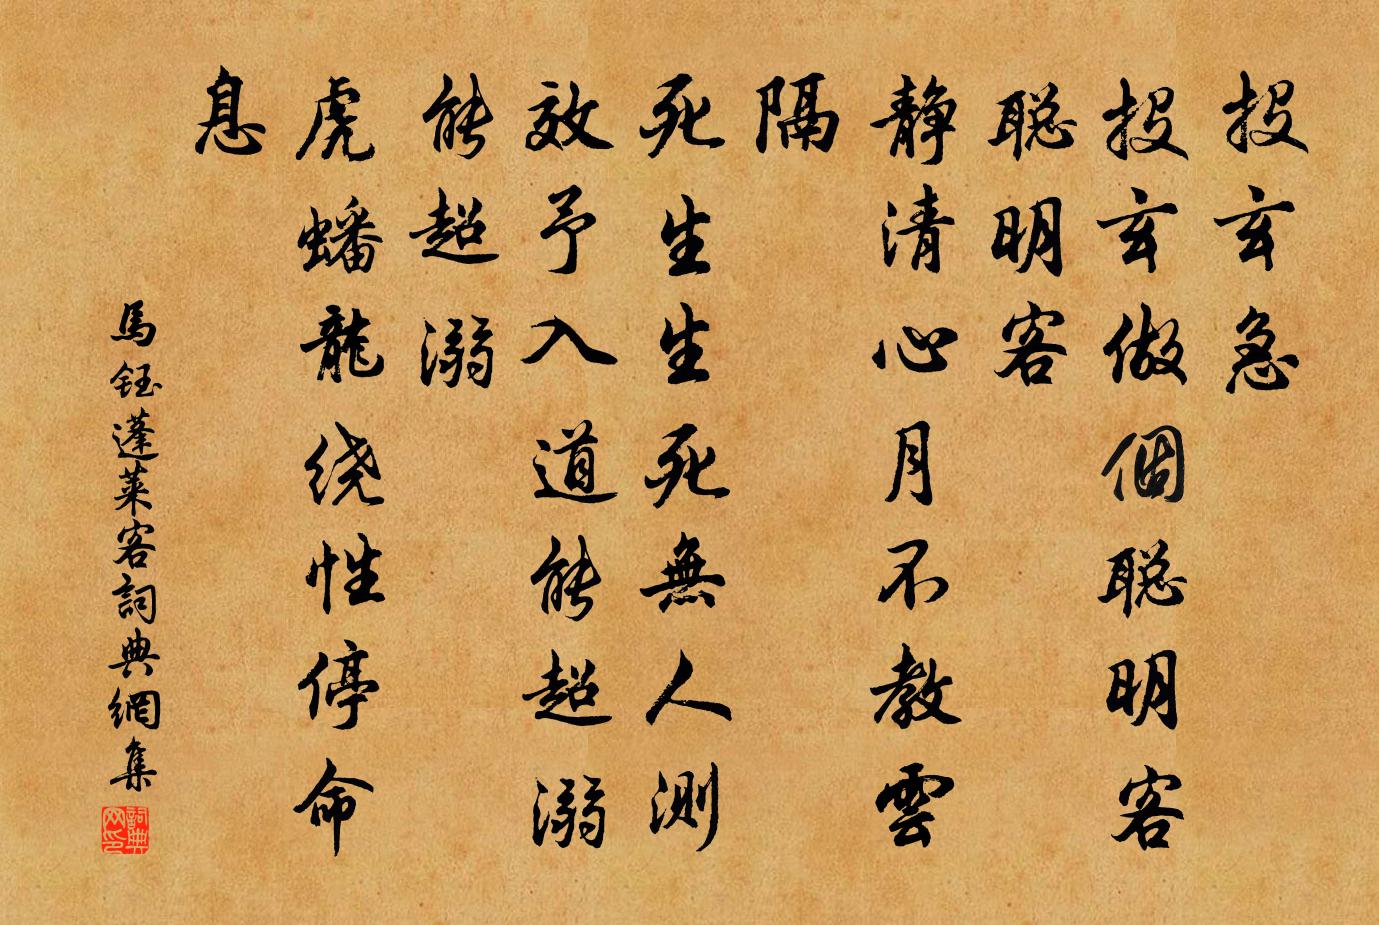 投玄急
投玄做個聪明客
聪明客
静清心月不教雲
隔
死生生死無人測
效予入道能超溺
能超溺
虎蟠龍绕性停命
息
馬鈺蓬莱客詞典網集
詞典网印